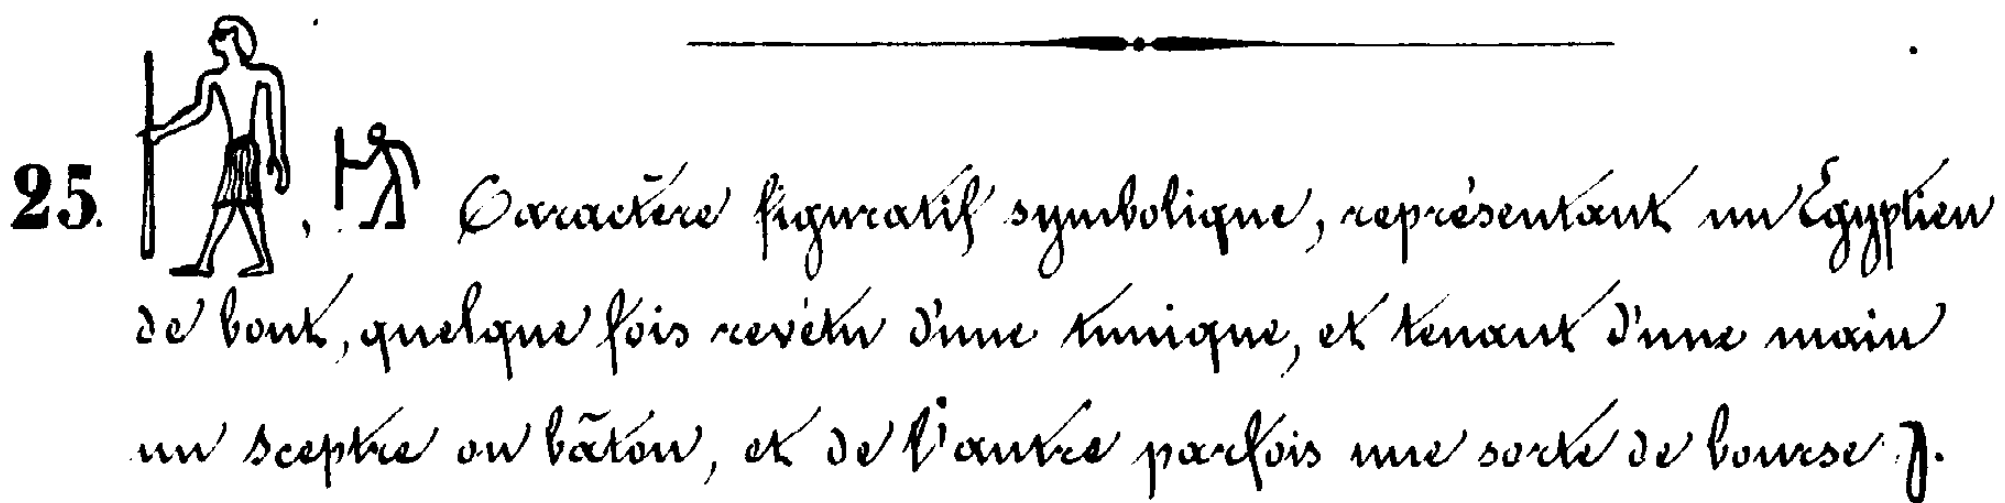 25. , Caractère figuratif symbolique, représentant un Égyptien
de bout, quelque fois revétu d'une tunique, et tenant d'une main
un sceptre ou bâton, et de l'autre parfois une sorte de bourse.